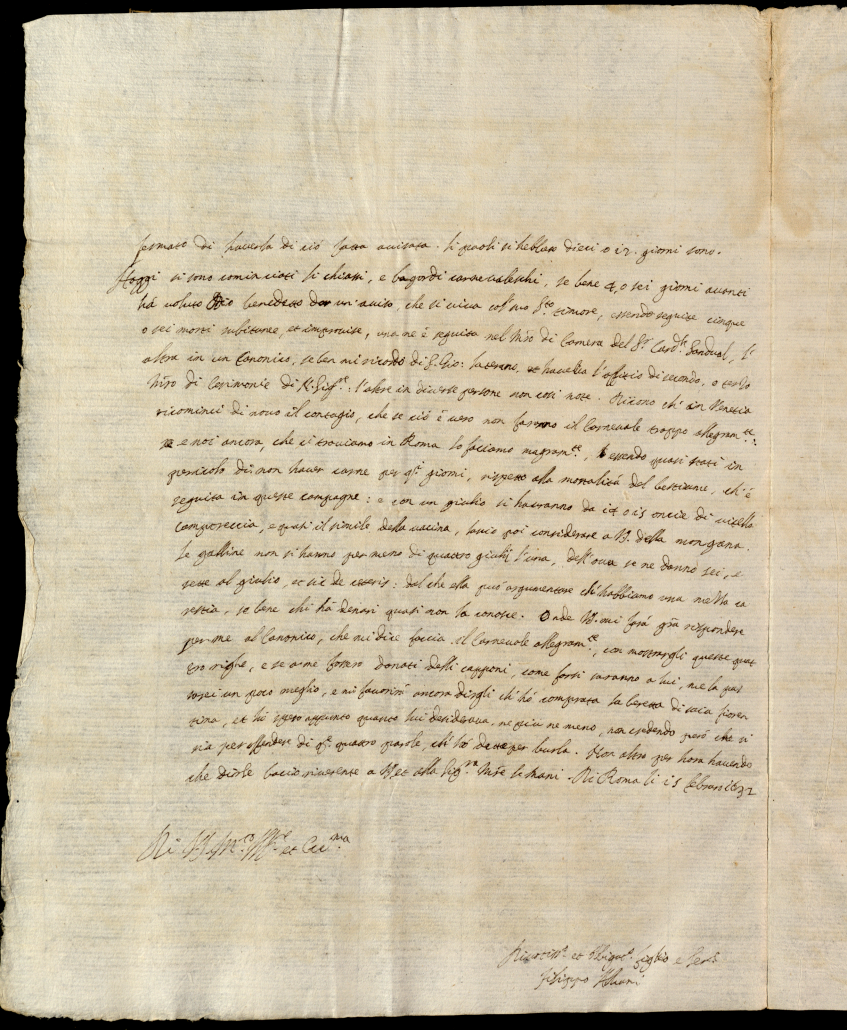 fermato di haverla di ciò fatta avisata. Li piedi si hebbero dieci o 12. giorni sono.
Hoggi si sono cominciati li chiassi, e bagordi carnevaleschi, se bene 4, o sei giorni avanti
hà voluto Dio benedetto dar un aviso, che si viva col suo S.to timore, essendo seguite cinque
o sei morti subitanee, et improvise, una ne è seguita nel Mro di Camera del S.r Card.l Sandoval, l'
altra in un Canonico, se ben mi ricordo di S. Gio: Laterano, et haveva l'offitio di secondo, o terzo
Mro di Cerimonie di N. Sig.re: l'altre in diverse persone non così note. Dicono ch' in Venetia
ricominci di novo il contagio, che se ciò è vero non faranno il Carnevale troppo allegram.te:
e noi ancora, che ci troviamo in Roma lo facciamo magram.te, essendo quasi stati in
pericolo di non haver carne per q.ti giorni, rispetto alla mortalità del bestiame, ch' è
seguita in queste campagne: e con un giulio si havranno da 14 o 15 oncie di vitella
camporeccia, e quasi il simile della vacina, lascio poi considerare a V.S. della mongana.
Le galline non si hanno per meno di quattro giulij l'una, dell'ova se ne danno sei, e
sette al giulio, et sic de ceteris: dal che ella può argumentare ch' habbiamo una mezza ca
restia, se bene chi hà denari quasi non la conosce. Onde V.S. mi farà gra rispondere
per me al Canonico, che mi dice faccia il Carnevale allegram.te, con mostrargli queste quat
tro righe, e se a me fossero donati delli capponi, come forsi saranno a lui, me la pas
sarei un poco meglio, e mi favorirà ancora dirgli ch' hò comprata la beretta di saia fioren
tina, et hò speso appunto quanto lui desiderava, ne più ne meno, non credendo però che si
sia per offendere di q.te quattro parole, ch' hò dette per burla. Non altro per hora havendo
che dirle bacio riverente a V.S. et alla Sig.ra Mre le mani. Di Roma li 15 febraro 1632
Di V.S. M.to Ill.re et Ecc.ma
Devotiss.o et Obligat.o figlio e Ser.re
Filippo